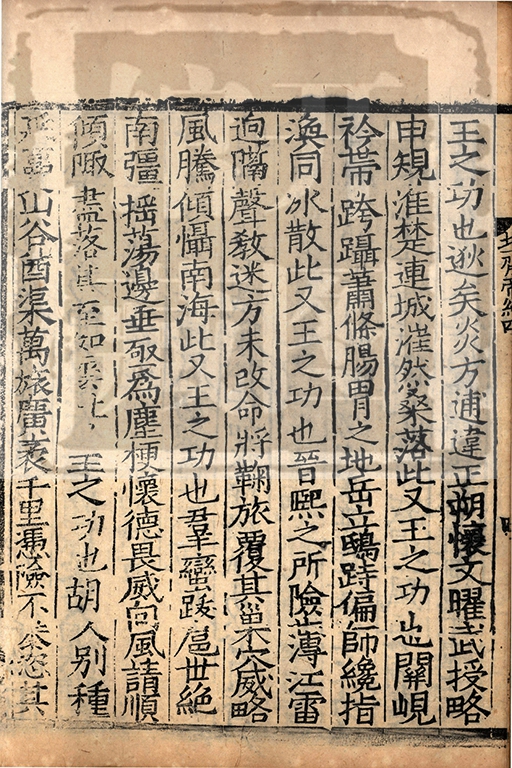 王之功也逖矣炎方逋違正朔懷文曜武授略
申規淮楚連城漼然桑落此又王之功也關峴
衿帶跨躡蕭條腸胃之地岳立鴟跱偏師纔指
渙同冰散此又王之功也晉熙之所險薄江雷
逈隔聲敎迷方未改命將鞠旅覆其巢穴威略
風騰傾懾南海此又王之功也羣蠻跋扈世絕
南彊揺蕩邊垂亟爲塵梗懷德畏威向風請順
傾陬盡落其至如雲王之功也胡人別種
山谷酋渠萬旅廣袤千里憑險不恭恣其
齊帝紀四